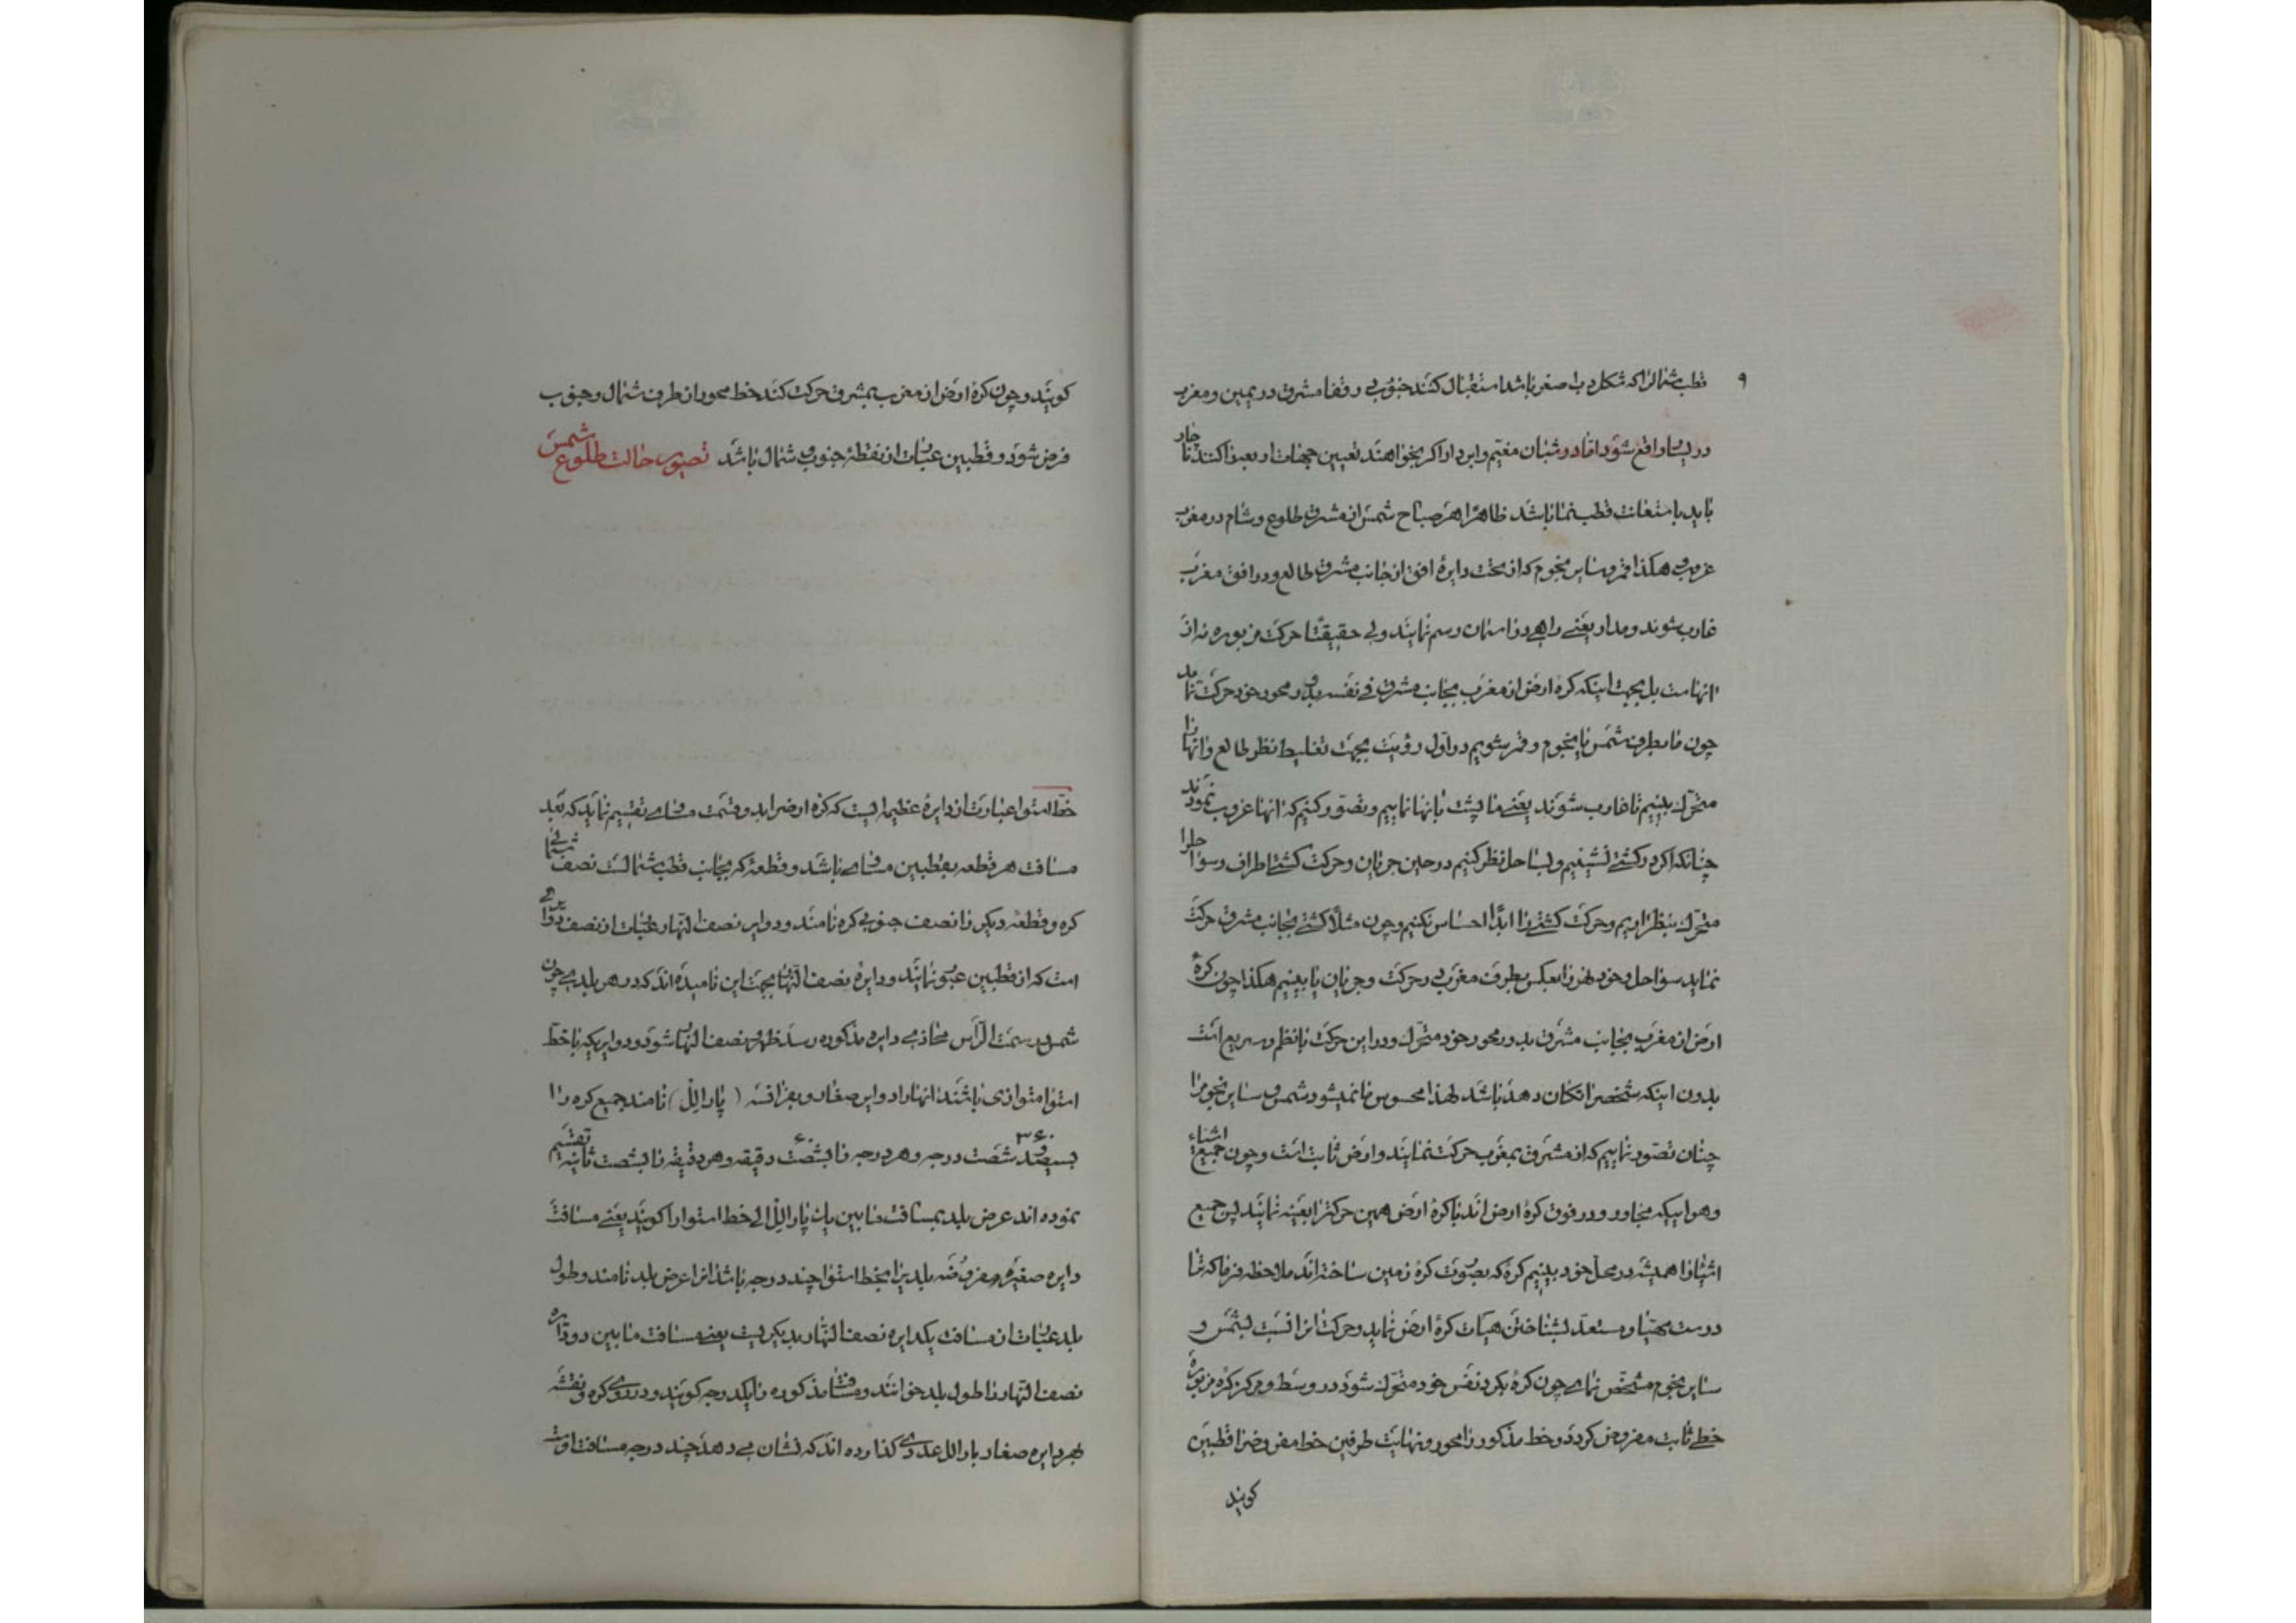 ۹
قطب شمالرا که شکل دب اصغر باشد استقبال کنند جنوبی در قفا مشرق در یمین و مغرب
در یسار واقع شود اما در شبان مغیّم و ابر دار اگر بخواهند تعیین جهات اربعه را کنند ناچار
باید باستعانت قطب نما باشد ظاهرا هر صباح شمس از مشرق طلوع و شام در مغرب
غروب و هکذا قمر و سایر نجوم که از تحت دایرهٔ افق از جانب مشرق طالع و در افق مغرب
غارب شوند و مدار یعنی راهی در آسمان رسم نمایند ولی حقیقتًا حرکت مزبوره نه از
آنهاست بل بجهت اینکه کره ارض از مغرب بجانب مشرق فی نفسه بدور محور خود حرکت نماید
چون ما بطرف شمس یا نجوم و قمر شویم در اول رؤیت بجهت تغلیط نظر طالع و آنها را
متحرّک بینیم تا غارب شوند یعنی ما پشت بآنها نماییم و تصوّر کنیم که آنها غروب نمودند
چنانکه اگر در کشتی نشینیم و بساحل نظر کنیم در حین جریان و حرکت کشتی اطراف و سواحل را
متحرّک بنظر آریم و حرکت کشتی را ابدًا احساس نکنیم و چون مثلاً کشتی بجانب مشرق حرکت
نماید سواحل و خود نهر را بعکس بطرف مغرب در حرکت و جریان یا بینیم هکذا چون کرهٔ
ارض از مغرب بجانب مشرق بدور محور خود متحرّک و در این حرکت بانظم و سریع است
بدون اینکه شخصرا تکان دهد باشد لهذا محسوس ما نمیشود شمس و سایر نجوم را
چنان تصوّر نماییم که از مشرق بمغرب حرکت نمایند و ارض ثابت است و چون جمیع اشیاء
و هواییکه مجاور و در فوق کرهٔ ارض اند با کرهٔ ارض همین حرکترا بعینه نمایند پس جمیع
اشیا را همیشه در محل خود بینیم کرهٔ که بصورت کرهٔ زمین ساخته اند ملاحظه فرما که ترا
درست مهیّا و مستعدّ بشناختن هیئات کرهٔ ارض نماید و حرکت آنرا نسبت بشمس و
سایر نجوم مشخّص نمای چون کرهٔ بگرد نفس خود متحرّک شود در وسط و مرکز کره مزبوره
خطی ثابت مفروض گردد و خط مذکور را محور و نهایت طرفین خط مفروضرا قطبین
گویند
گویند و چون کرهٔ ارض از مغرب بمشرق حرکت کند خط محور از طرف شمال و جنوب
فرض شود و قطبین عبارت از نقطهٔ جنوب و شمال باشد تصویر حالت طلوع شمس
خطّ استوا عبارت از دایرهٔ عظیمه ایست که کره ارضرا بدو قسمت مساوی تقسیم نماید که بُعد
مسافت هر قطعه بقطبین مساوی باشد و قطعهٔ که بجانب قطب شمالست نصف شمالی
کره و قطعه دیگر را نصف جنوبی کره نامند و دوایر نصف النهار عبارت از نصف دوایری
است که از قطبین عبور نمایند و دایرهٔ نصف النهار بجهت این نامیده اند که در هر بلدی چون
شمس بسمت الرّأس محاذی دایره مذکوره رسد ظهر و نصف النهار شود و دوایریکه با خطّ
استوا متوازی باشند آنها را دوایر صغار و بفرانسه (پارالِل) نامند جمیع کره را
بسیصد و شصت ۳۶۰ درجه و هر درجه را بشصت ۶۰ دقیقه و هر دقیقه را بشصت ثانیه تقسیم
نموده اند عرض بلد بمسافت مابین یک پارالِل الی خط استوا را گویند یعنی مسافت
دایره صغیرهٔ مفروضه بلدیرا بخط استوا چند درجه باشد آنرا عرض بلد نامند و طول
بلد عبارت از مسافت یکدایره نصف النهار بدیگریست یعنی مسافت مابین دو دایره
نصف النهار را طول بلد خوانند و مسافت مذکوره را یکدرجه گویند و در روی کره و نقشه
بهر دایره صغار پارالل عددی گذارده اند که نشان می دهد چند درجه مسافت اوست